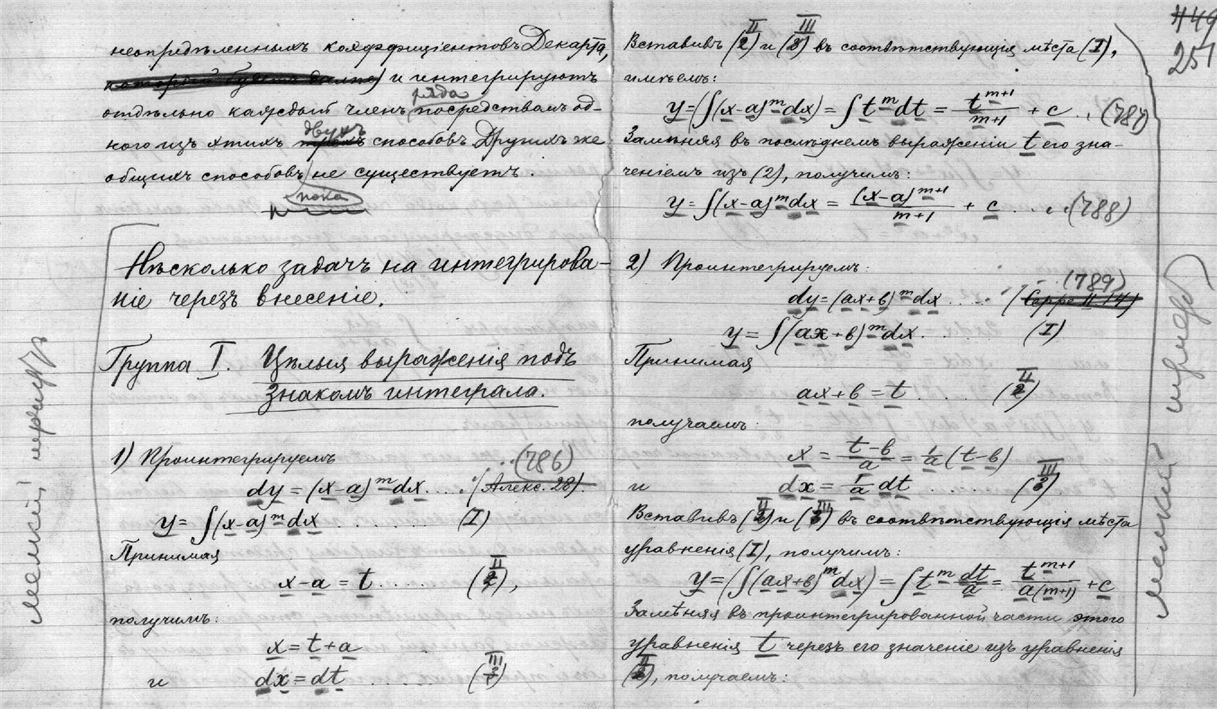 неопредѣленныхъ коэффиціентовъ Декарта,
и интегрируютъ
отдѣльно каждый членъ ряда посредствомъ од-
ного изъ этихъ двухъ способовъ. Другихъ же
общихъ способовъ пока не существуетъ.
Нѣсколько задачъ на интегрирова-
ніе черезъ внесеніе.
Группа I. Цѣлыя выраженія подъ
знакомъ интеграла.
1) Проинтегрируемъ
(786)
dy = (x-a)^m dx .... (Алекс. 28).
y = ∫(x-a)^m dx (I)
Принимая
x-a = t ... (II),
получимъ:
x = t+a
и dx = dt ... (III)
мелкій шрифтъ
449
251
Вставивъ (II) и (III) въ соотвѣтствующія мѣста (I),
имѣемъ:
y = (∫(x-a)^m dx) = ∫ t^m dt = t^{m+1}/(m+1) + c .. (787)
Замѣняя въ послѣднемъ выраженіи t его зна-
ченіемъ изъ (2), получимъ:
y = ∫(x-a)^m dx = (x-a)^{m+1}/(m+1) + c .... (788)
2) Проинтегрируемъ:
(789)
dy = (ax+b)^m dx .... (Серре II 14)
y = ∫(ax+b)^m dx (I)
Принимая
ax+b = t (II)
получаемъ:
x = (t-b)/a = 1/a (t-b)
и dx = 1/a dt ...... (III)
Вставивъ (II) и (III) въ соотвѣтствующія мѣста
уравненія (I), получимъ:
y = (∫(ax+b)^m dx) = ∫ t^m dt/a = t^{m+1}/(a(m+1)) + c
Замѣняя въ проинтегрированной части этого
уравненія t черезъ его значеніе изъ уравненія
(II), получаемъ:
мелкій шрифтъ